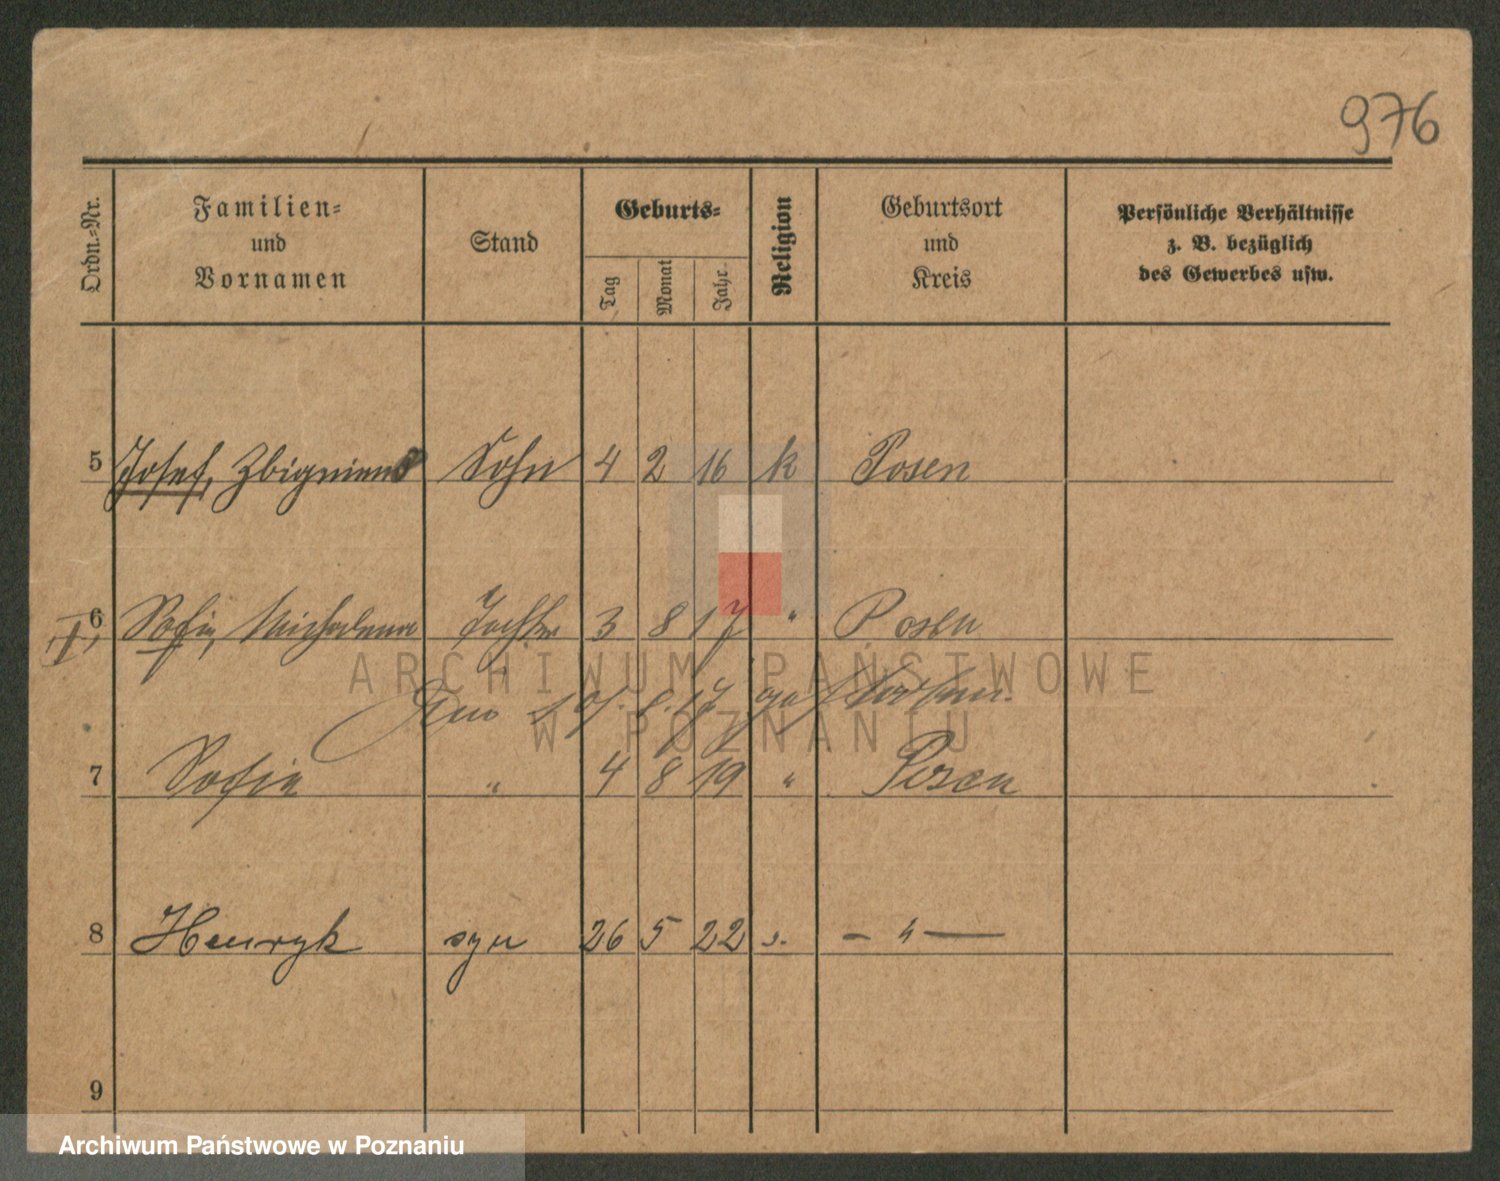 976
Ordn.-Nr. Familien- und Vornamen Stand Geburts- Tag Monat Jahr Religion Geburtsort und Kreis Persönliche Verhältnisse z. B. bezüglich des Gewerbes usw.
5 Josef, Zbigniew Sohn 4 2 16 k Posen
6 Sofia, Michalina Tochter 3 8 17 " Posen
ARCHIWUM PAŃSTWOWE
gestorben.
W POZNANIU
7 Sofie " 4 8 19 " Posen
8 Henryk syn 26 5 22 - " -
9
Archiwum Państwowe w Poznaniu